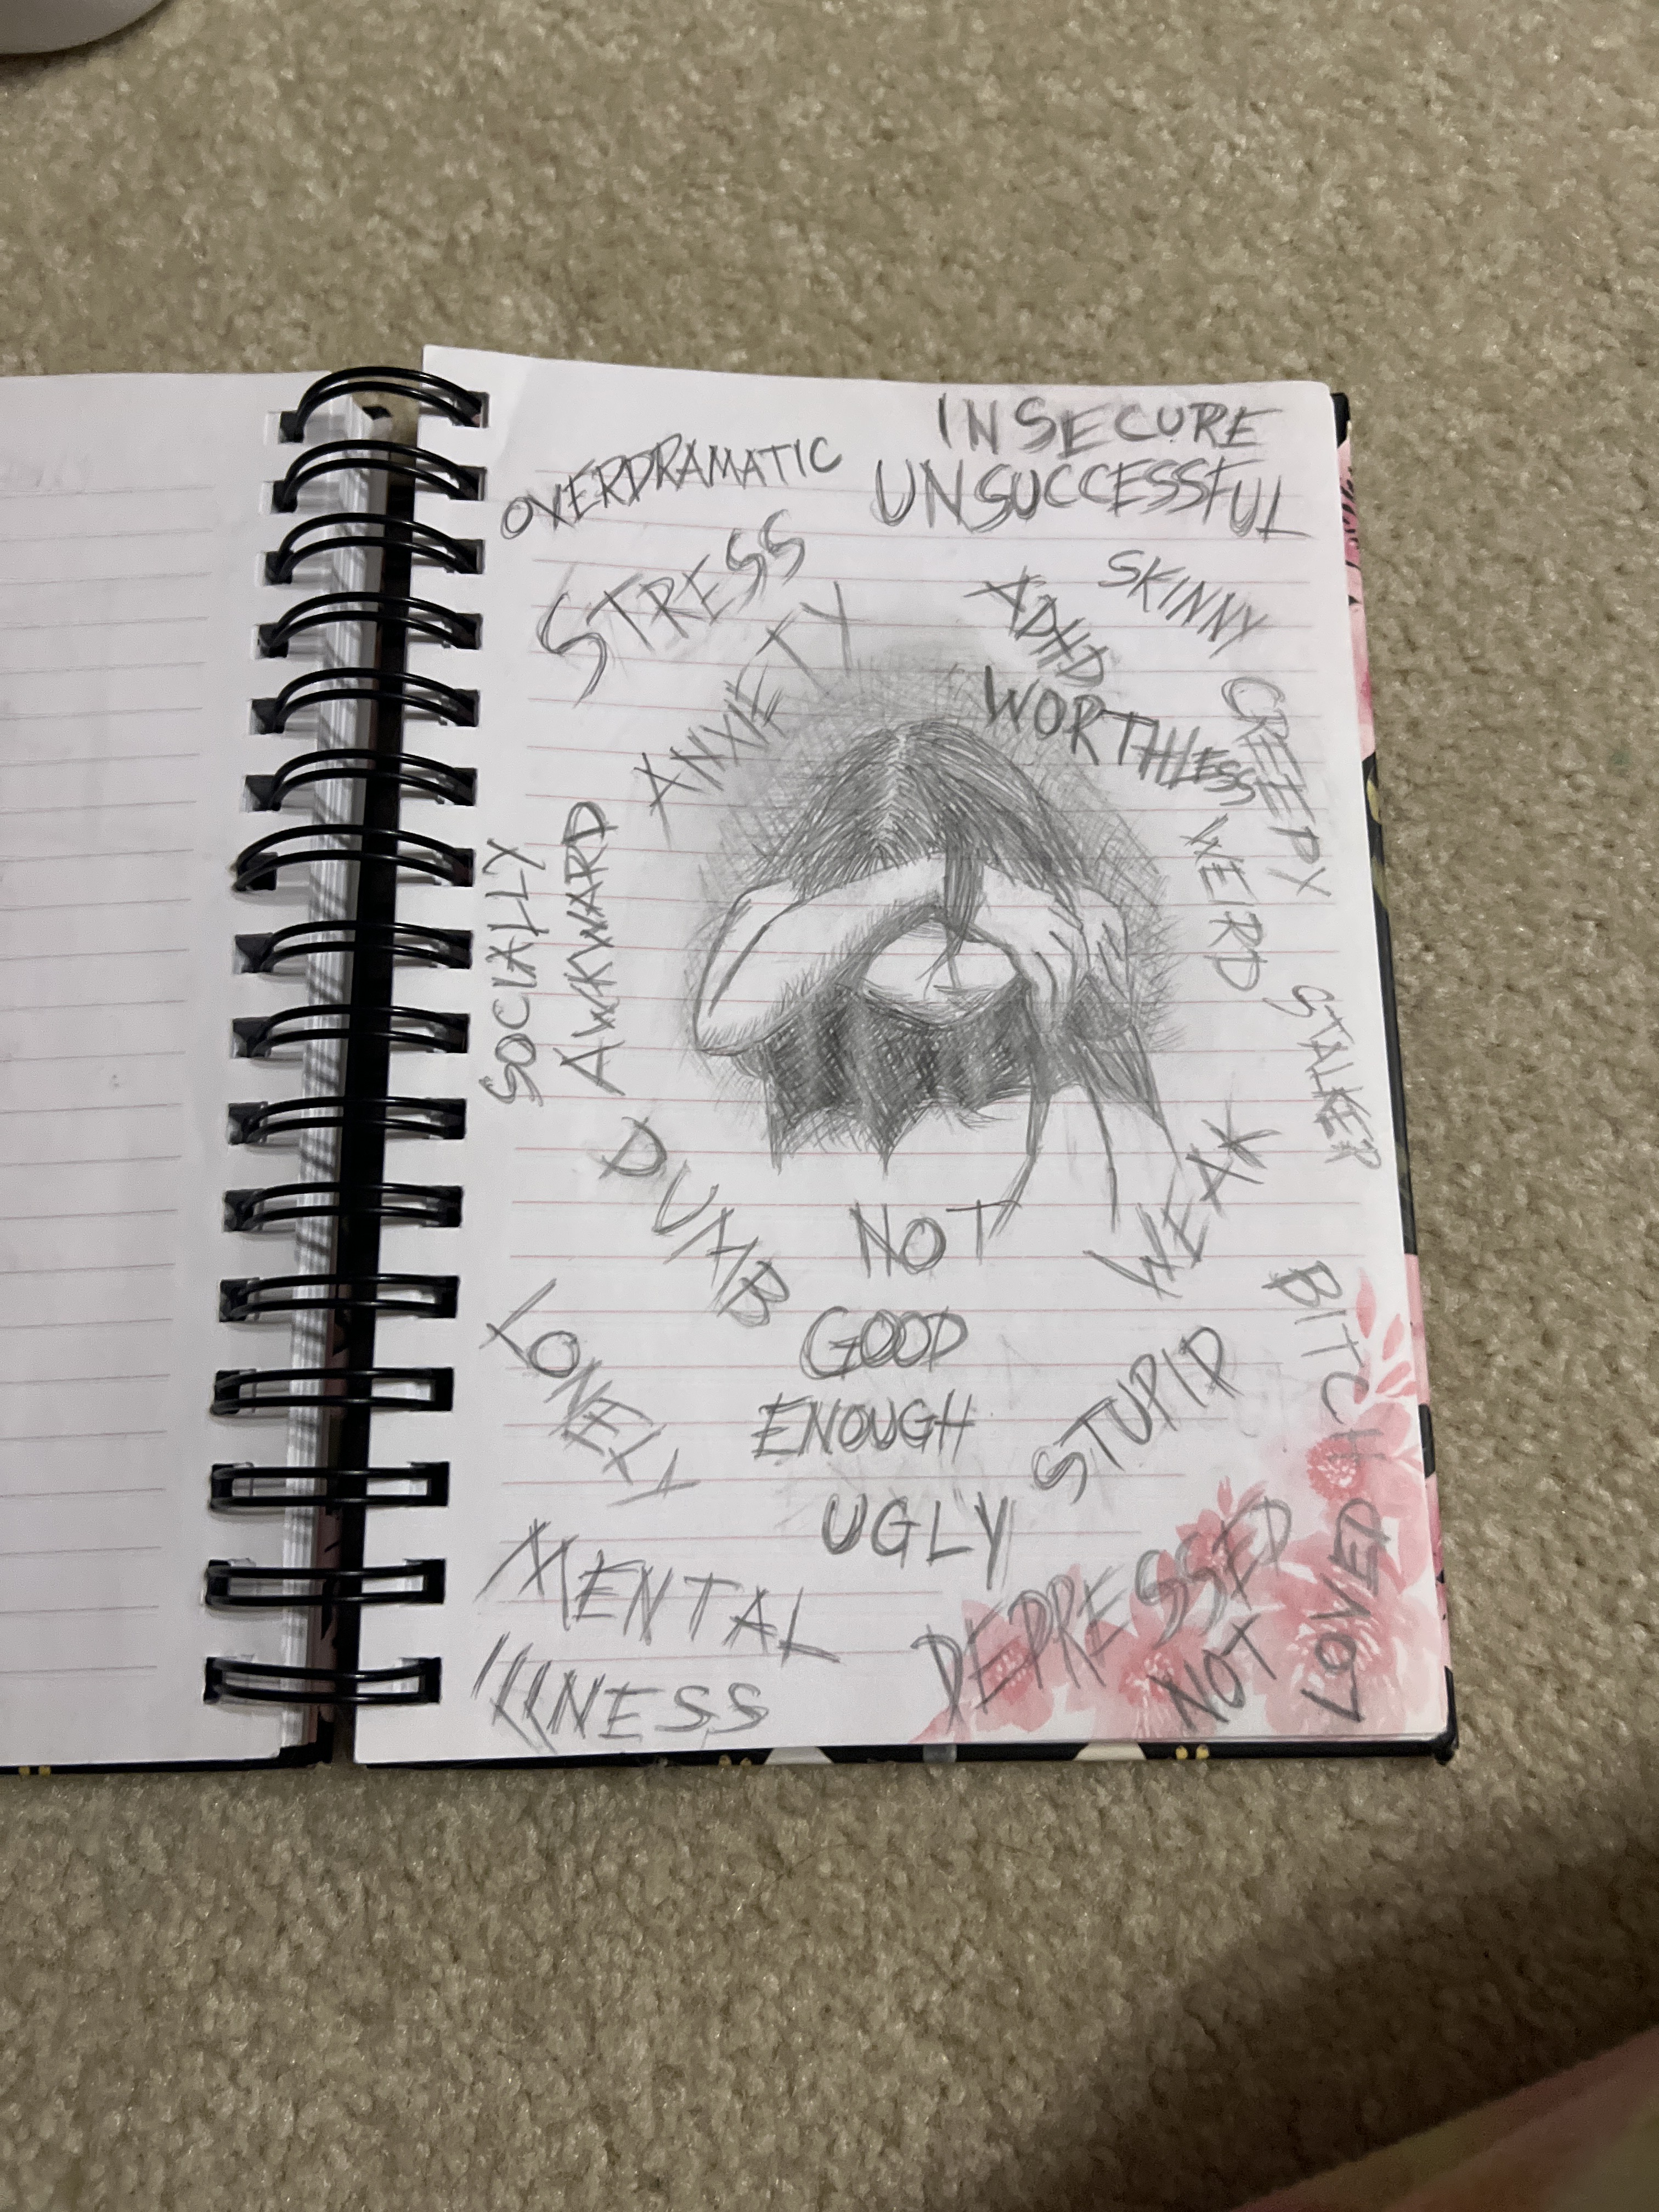 INSECURE
OVERDRAMATIC
UNSUCCESSFUL
STRESS
SKINNY
ADHD
ANXIETY
WORTHLESS
CREEPY
SOCIALLY
AWKWARD
WEIRD
STALKER
DUMB
WEAK
NOT
GOOD
ENOUGH
LONELY
STUPID
BITCH
UGLY
MENTAL
ILLNESS
DEPRESSED
NOT
LOVED